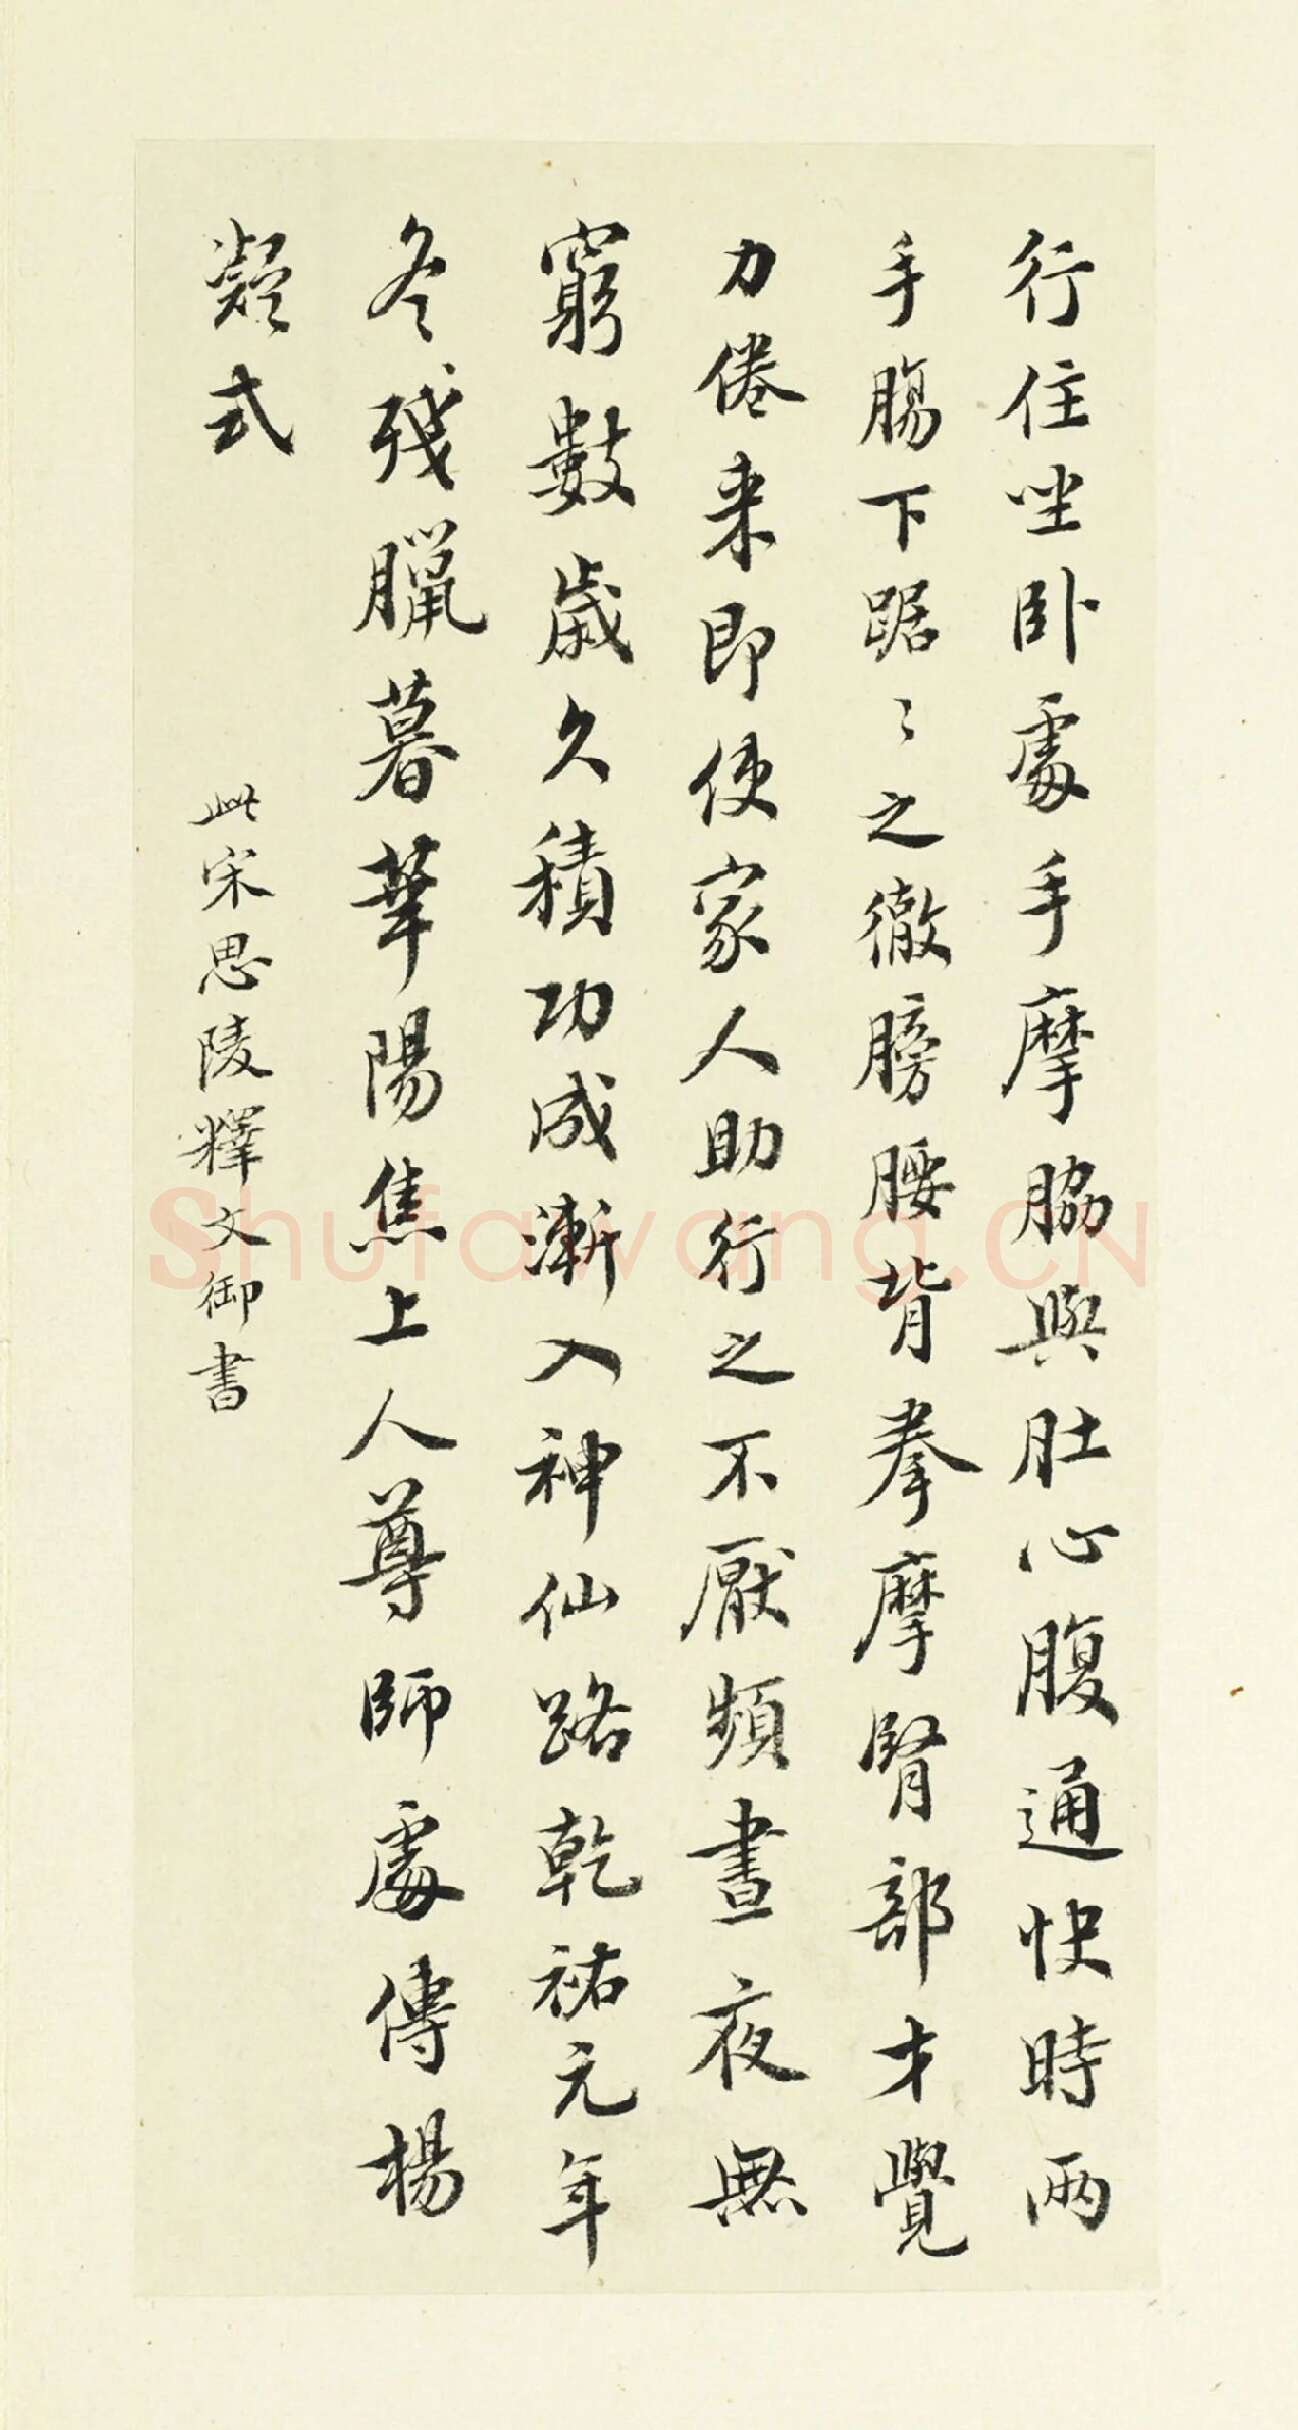 行住坐卧處手摩脇與肚心腹通快時兩
手腸下踞〻之徹膀腰背拳摩腎部才覺
力倦来即使家人助行之不厭頻晝夜無
窮數歲久積功成漸入神仙路乾祐元年
冬殘臘暮華陽焦上人尊師處傳楊
凝式
此宋思陵釋文御書
Shufawang.CN